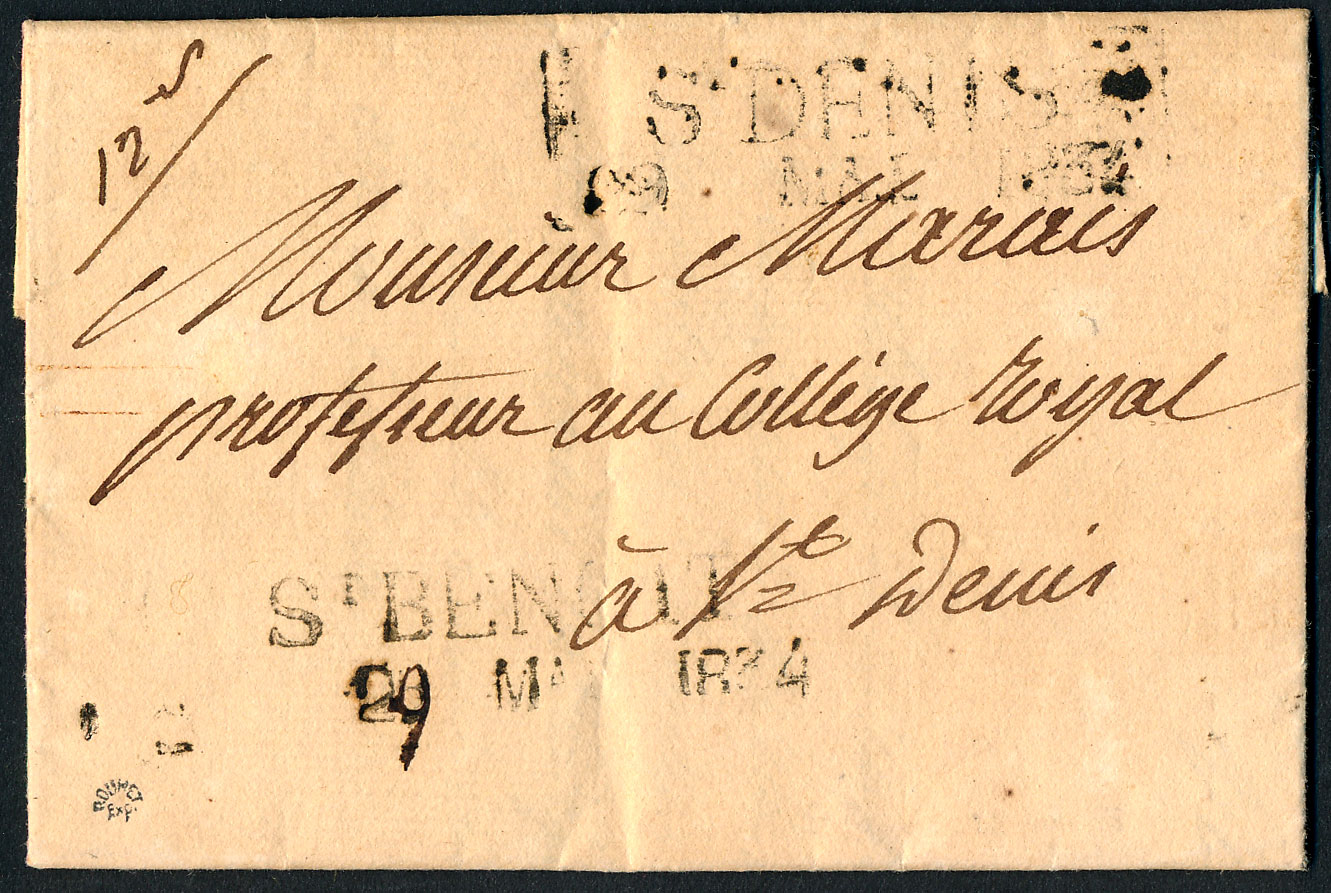 12 s
St DENIS
29 MAI 1834
Monsieur Marais
professeur au Collège royal
à St Denis
St BENOIT
29 MAI 1834
ROUMET
EXP.